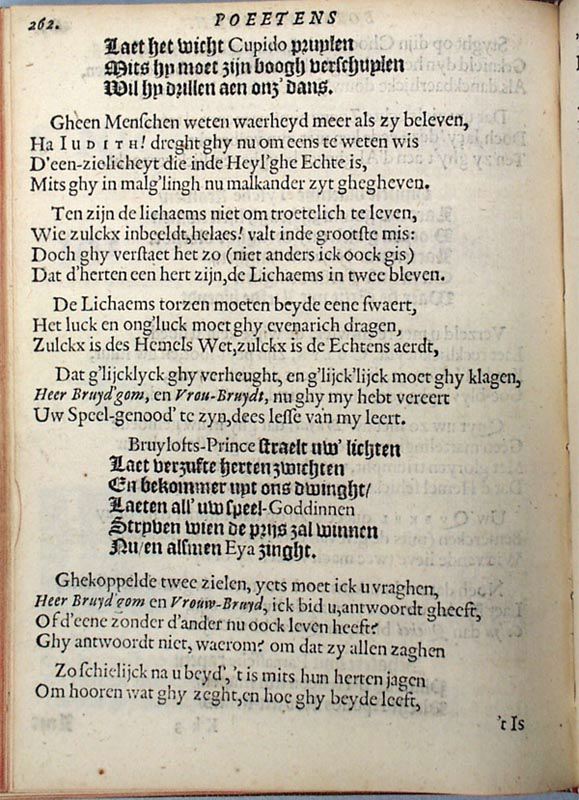 262.
POEETENS
Laet het wicht Cupido pruylen
Mits hy moet zijn boogh verschuylen
Wil hy drillen aen onz' dans.
Gheen Menschen weten waerheyd meer als zy beleven,
Ha IUDITH! dreght ghy nu om eens te weten wis
D'een-zielicheyt die inde Heyl'ghe Echte is,
Mits ghy in malg'lingh nu malkander zyt ghegheven.
Ten zijn de lichaems niet om troetelich te leven,
Wie zulckx inbeeldt, helaes! valt inde grootste mis:
Doch ghy verstaet het zo (niet anders ick oock gis)
Dat d'herten een hert zijn, de Lichaems in twee bleven.
De Lichaems torzen moeten beyde eene swaert,
Het luck en ong'luck moet ghy evenarich dragen,
Zulckx is des Hemels Wet, zulckx is de Echtens aerdt,
Dat g'lijcklyck ghy verheught, en g'lijck'lijck moet ghy klagen,
Heer Bruyd'gom, en Vrou-Bruydt, nu ghy my hebt vereert
Uw Speel-genood' te zyn, dees lesse va'n my leert.
Bruylofts-Prince straelt uw' lichten
Laet verzufte herten zwichten
En bekommer uyt ons dwinght/
Laeten all' uw speel-Goddinnen
Stryben wien de prijs zal winnen
Nu/en alsmen Eya zinght.
Ghekoppelde twee zielen, yets moet ick u vraghen,
Heer Bruyd'gom en Vrouw-Bruyd, ick bid u, antwoordt gheeft,
Of d'eene zonder d'ander nu oock leven heeft?
Ghy antwoordt niet, waerom? om dat zy allen zaghen
Zo schielijck na u beyd', 't is mits hun herten jagen
Om hooren wat ghy zeght, en hoe ghy beyde leeft,
't Is